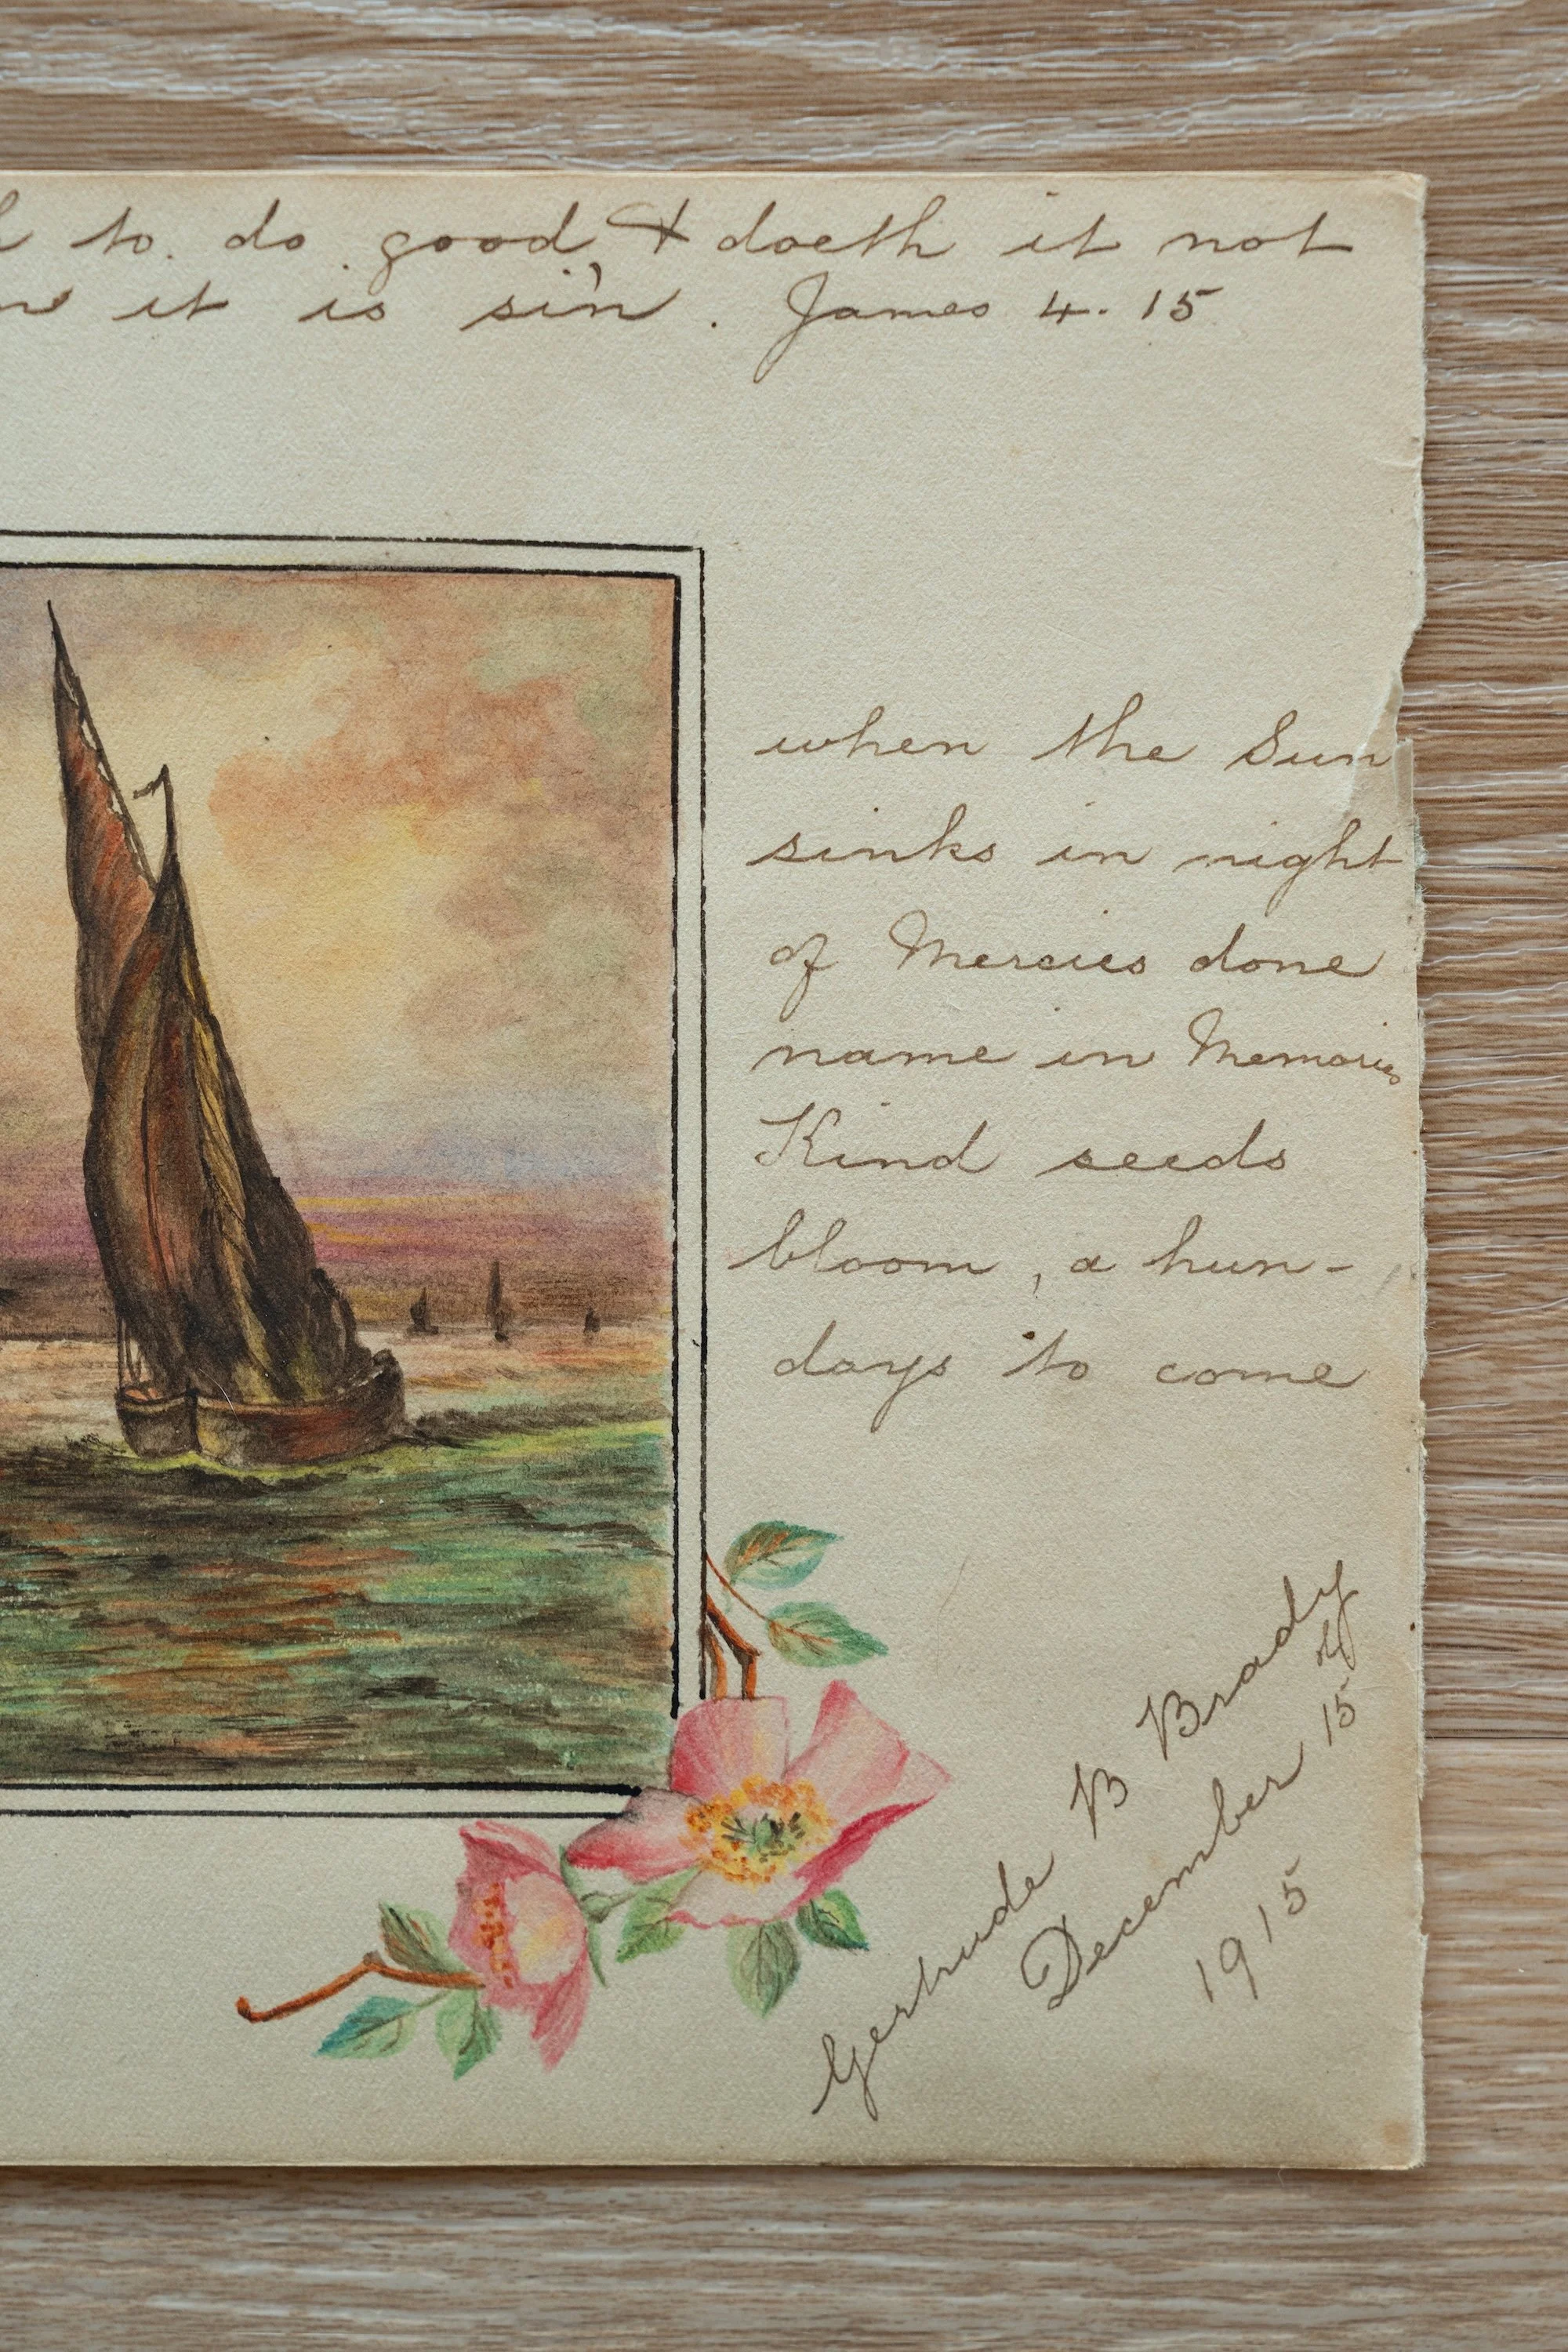 to do good, & doeth it not
it is sin. James 4. 15
when the Sun
sinks in night
of Mercies done
name in Memories
Kind seeds
bloom, a hun-
days to come
Gertrude B Brady
December 15th
1915